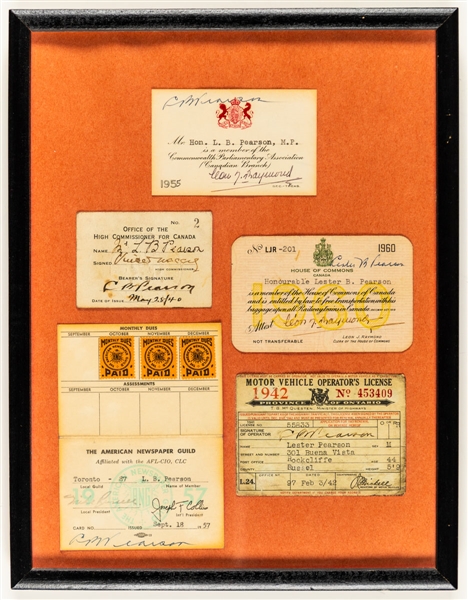 L B Pearson
Mr Hon. L. B. Pearson, M.P.
is a member of the
Commonwealth Parliamentary Association
(Canadian Branch)
Leon J Raymond
1955
No. 2
OFFICE OF THE
HIGH COMMISSIONER FOR CANADA
NAME Mr L B Pearson
SIGNED Vincent Massey
HIGH COMMISSIONER
BEARER'S SIGNATURE
L B Pearson
DATE OF ISSUE May 25/40
No LJR-201 1960
Lester B Pearson
HOUSE OF COMMONS
CANADA
Honourable Lester B. Pearson
is a member of the House of Commons of Canada
and is entitled by law to free transportation with his
baggage upon all Railway trains in Canada
Attest Léon J Raymond
NOT TRANSFERABLE
LEON J. RAYMOND
CLERK OF THE HOUSE OF COMMONS
MONTHLY DUES
SEPTEMBER OCTOBER NOVEMBER DECEMBER
MONTHLY DUES MONTHLY DUES MONTHLY DUES
PAID PAID PAID
ASSESSMENTS
SEPTEMBER OCTOBER NOVEMBER DECEMBER
THE AMERICAN NEWSPAPER GUILD
Affiliated with the AFL-CIO, CLC
Toronto - 87 L. B. Pearson
Local Guild Name of Member
Joseph F Collis
Local President Int'l President
CARD NO. ISSUED Sept. 18 1957
L B Pearson
MOTOR VEHICLE OPERATOR'S LICENSE
1942 No 453409
PROVINCE OF ONTARIO
T. B. McQUESTEN, MINISTER OF HIGHWAYS
LICENSE NO. 55833
SIGNATURE OF OPERATOR L B Pearson
NAME Lester Pearson M
STREET AND NUMBER 301 Buena Vista
POST OFFICE Rockcliffe 44
COUNTY Russel
L24. 27 Feb 3/42